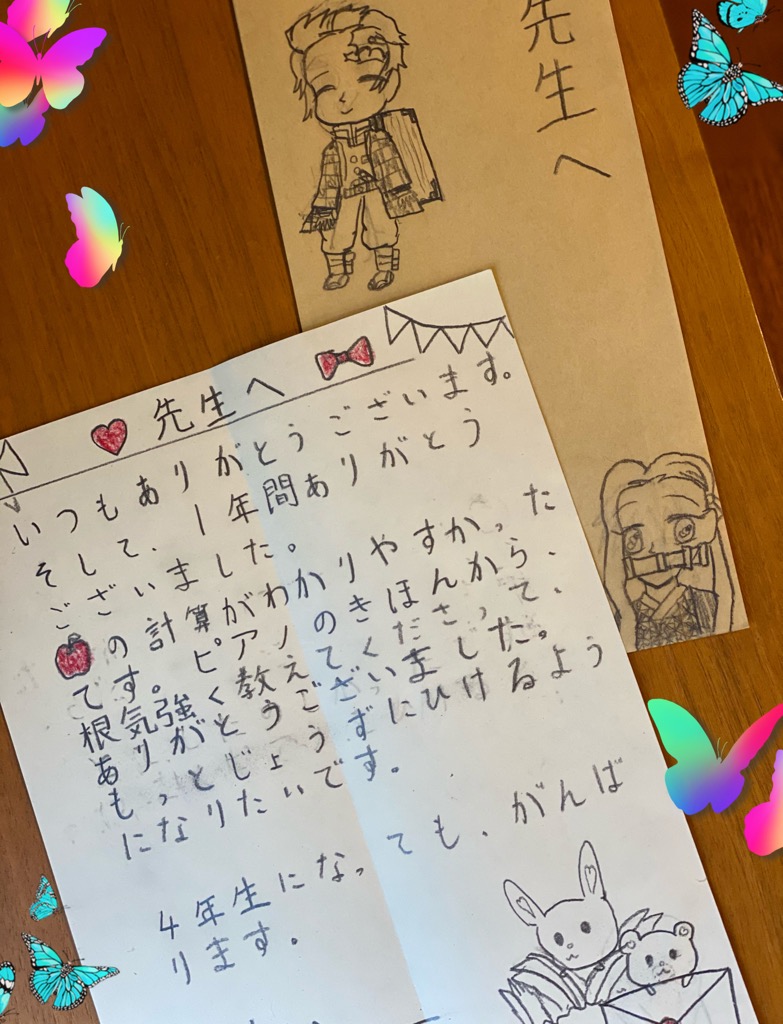 先生へ
先生へ
いつもありがとうございます。
そして、一年間ありがとう
ございました。
の計算がわかりやすかった
です。ピアノのきほんから、
根気強く教えてくださって、
ありがとうございました。
もっとじょうずにひけるよう
になりたいです。
4年生になっても、がんば
ります。